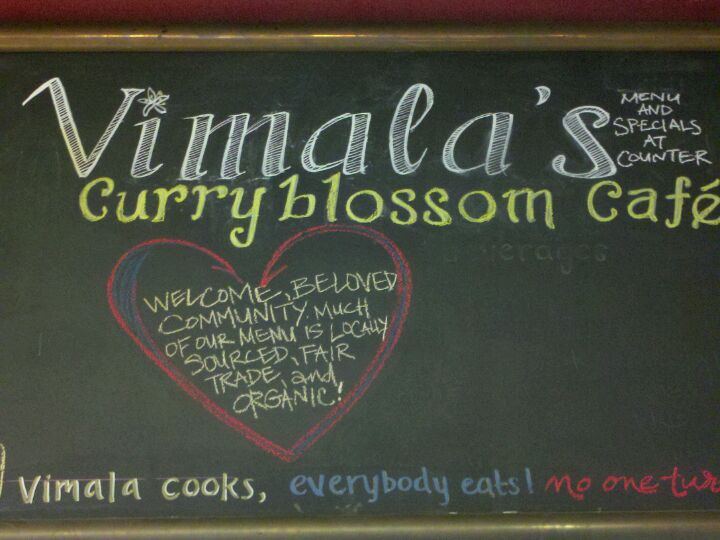 Vimala's
MENU
AND
SPECIALS
AT
COUNTER
Curryblossom Café
Beverages
WELCOME, BELOVED
COMMUNITY. MUCH
OF OUR MENU IS LOCALLY
SOURCED, FAIR
TRADE, and
ORGANIC!
Vimala cooks, everybody eats! no one tur